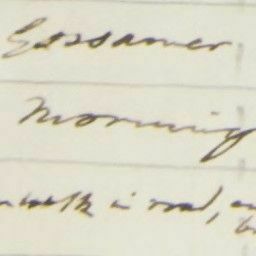 Gossamer
Morning
walk in road,